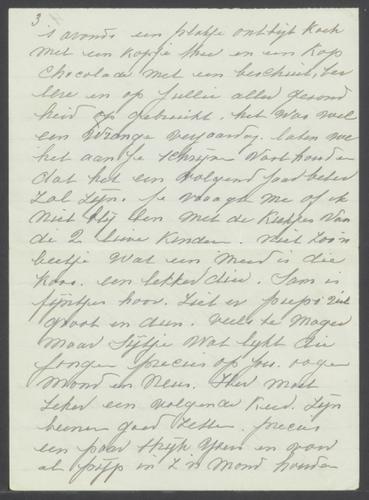 3
is avonds een plakje ontbijt koek
met een kopje thee en een kop
chocolade met een beschuit, ter
eere en op jullie aller gezond
heid op gebruikt. het was wel
een verjaardag. laten we
het aan je schrijven vast houden
dat het een volgend jaar beter
zal zijn. je vraagt me of ik
niet blij ben met de kiekjes van
de 2 lieve kinderen. niet zoo'n
beetje wat een meid is die
Koos. een lekker dier. Sam is
fijntjes hoor. ziet er
groot en dun. veels te mager
maar Sijtje wat lijkt die
jongen precies op jou. oogen
mond en neus. moet
zeker een volgende keer. zijn
beenen goed zetten. precies
een paar strijk ijzers en voor
al pijp in z'n mond houden